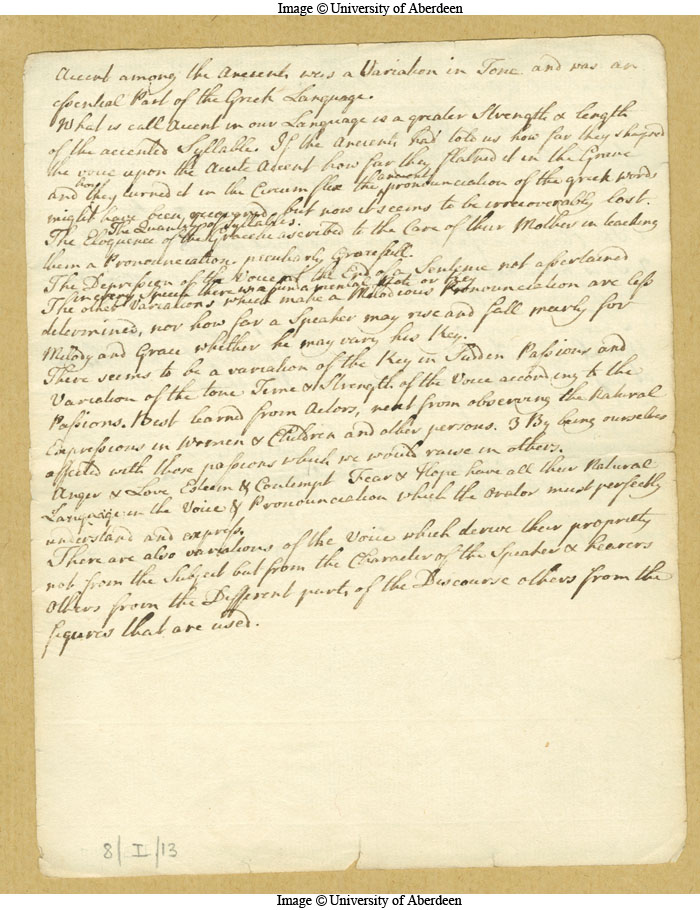 Image © University of Aberdeen
Accent among the Ancients was a Variation in Tone and was an
essential Part of the Greek Language.
What is call Accent in our Language is a greater Strength & length
of the accented Syllable. If the Ancients had told us how far they sharpned
the voice upon the Acute Accent how far they flatned it in the Grave
and how they turned it in the Circumflex the ancient pronounciation of the greek words
might have been recovered but now it seems to be irrecoverably lost.
The Quantity of Syllables.
The Eloquence of the Gracchi ascribed to the Care of their Mother in teaching
them a Pronounciation peculiarly Gracefull.
The Depression of the Voice at the End of a Sentence not assertained
In every Speech there was a fundamental Note or Key
The other Variations which make a Melodious Pronounciation are less
determined, nor how far a Speaker may rise and fall meerly for
Melody and Grace whether he may vary his Key.
There seems to be a variation of the Key in Sudden Passions and
Variation of the tone Time & Strength of the Voice according to the
Passions. Best learnd from Actors, next from observing the Natural
Expressions in Women & Children and other persons. 3 By being ourselves
affected with those passions which we would raise in others.
Anger & Love Esteem & Contempt Fear & Hope have all their Natural
Language in the Voice & Pronounciation which the orator must perfectly
understand and express.
There are also variations of the Voice which derive their propriety
not from the Subject but from the Character of the Speaker & hearers
Others from the Different parts of the Discourse others from the
figures that are used.
8/I/13
Image © University of Aberdeen